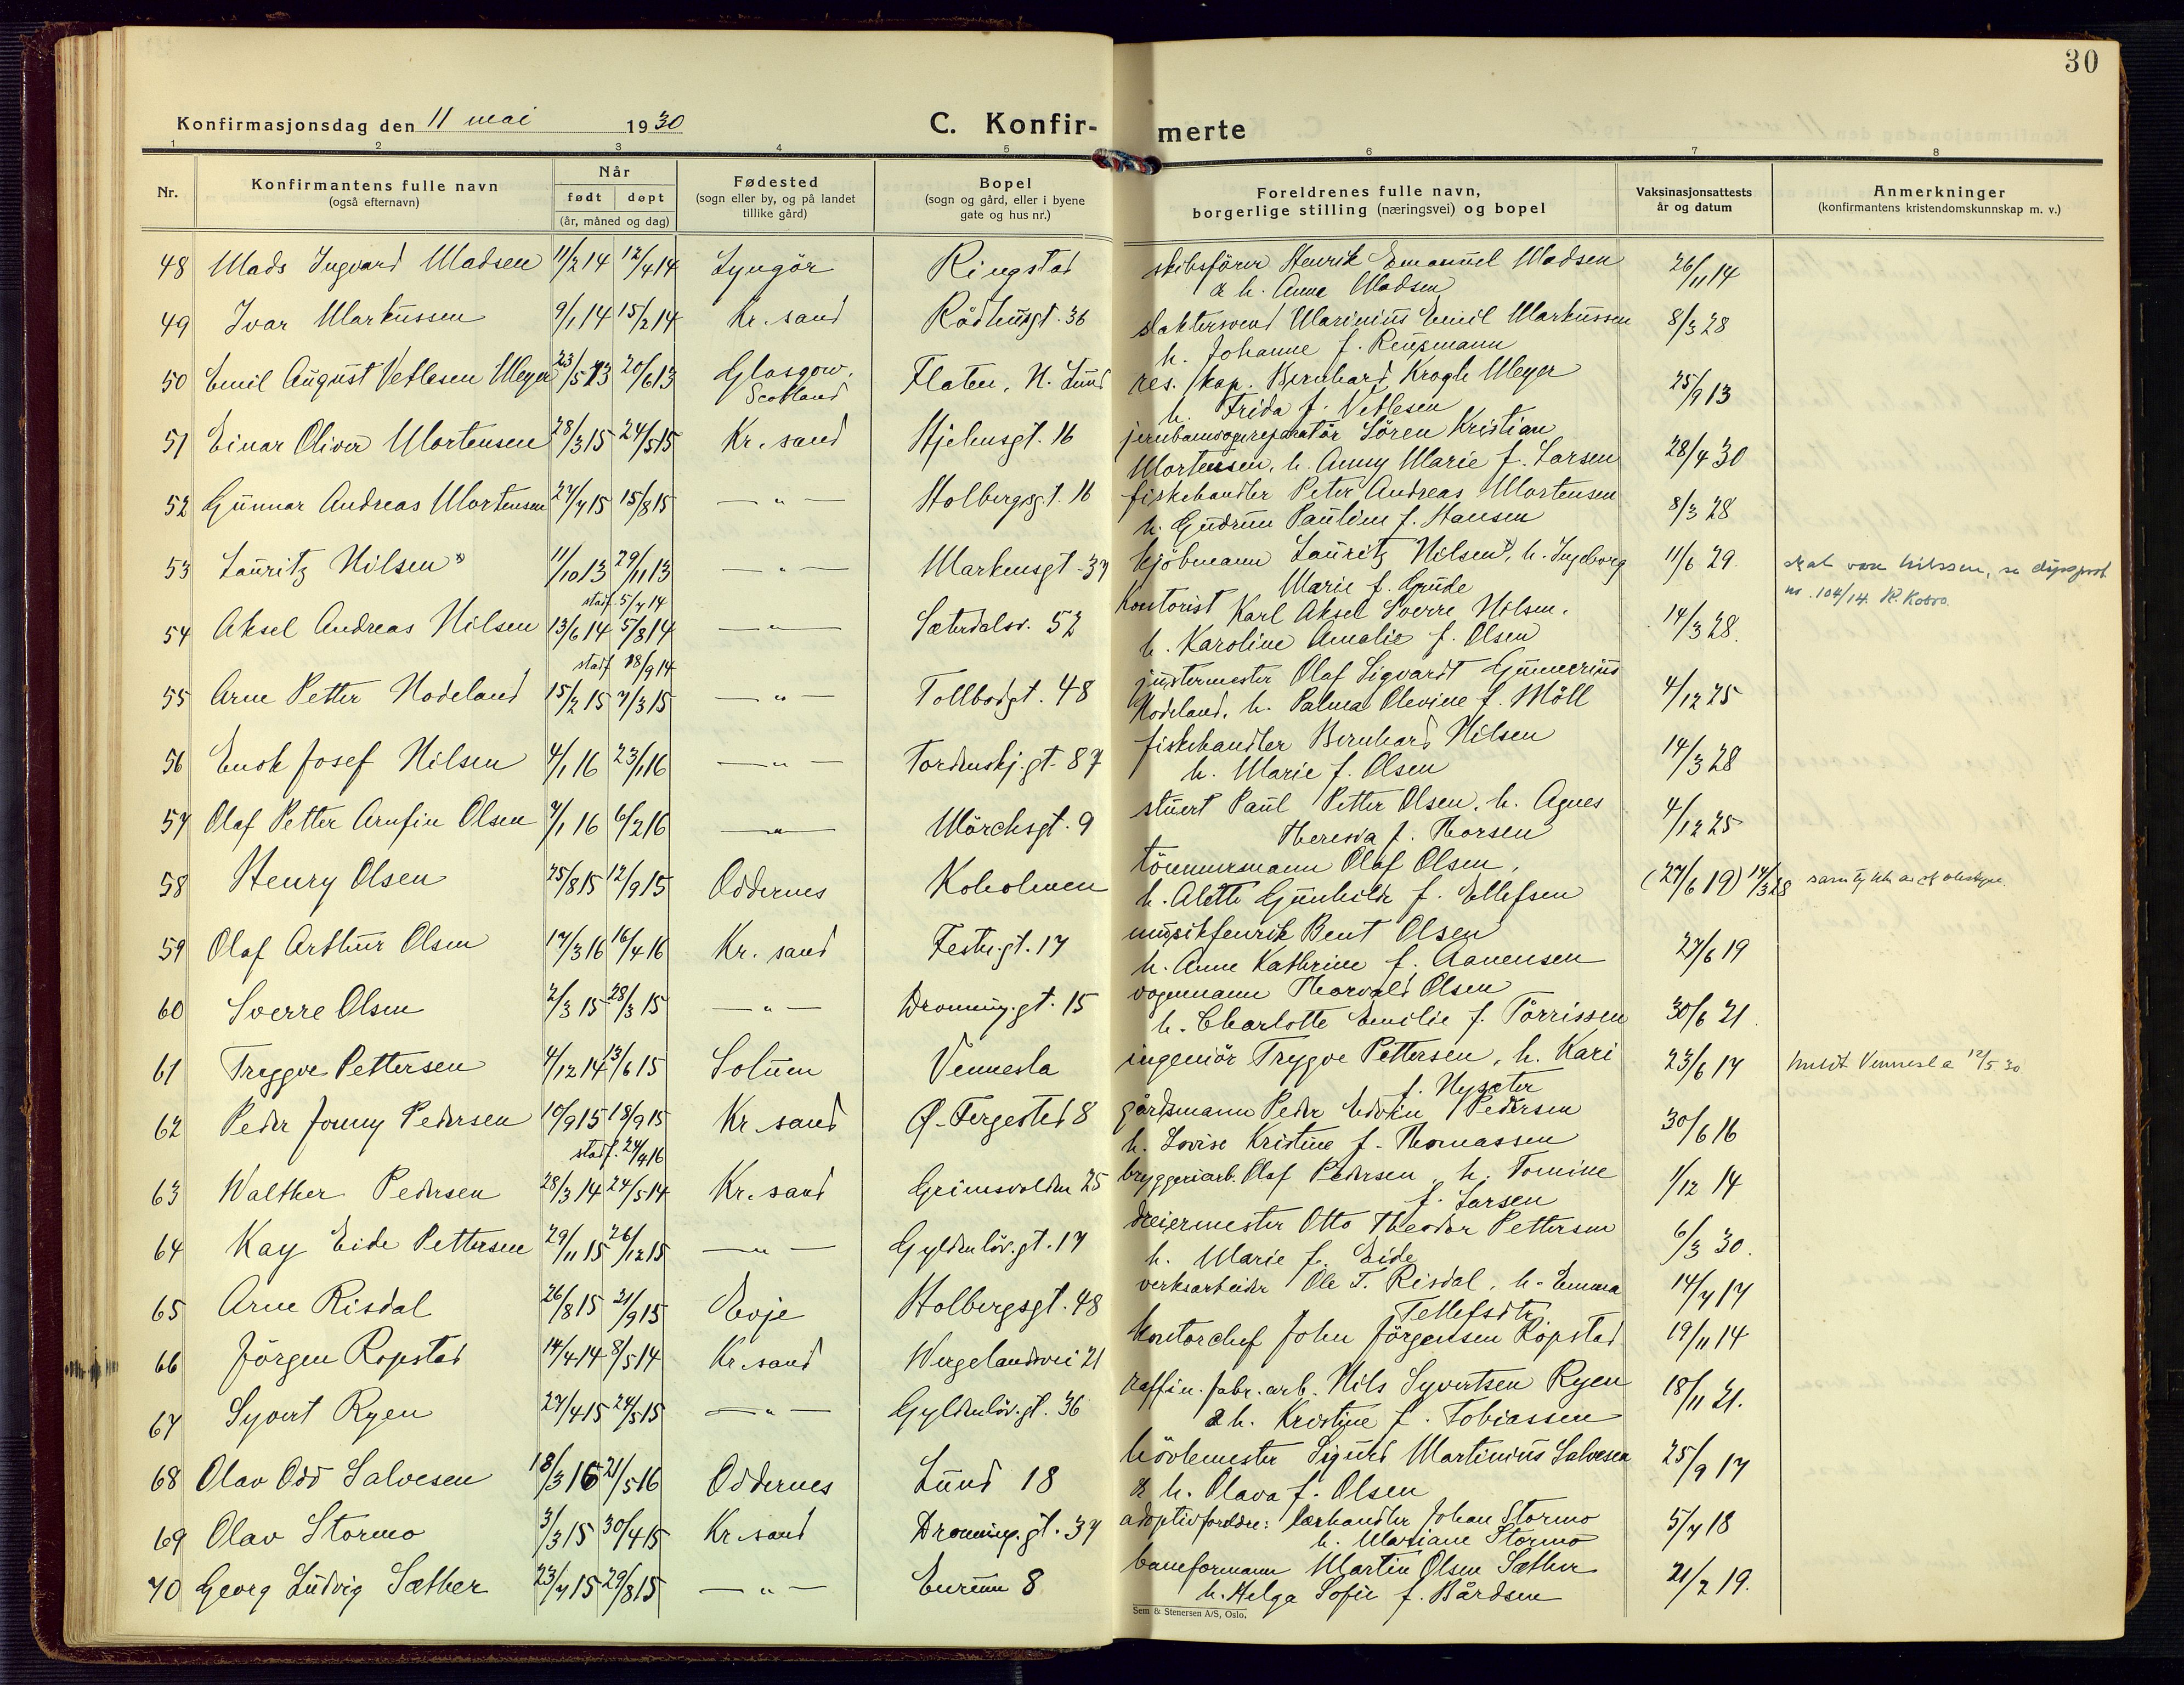 30
Konfirmasjonsdag den 11 mai 1930
C. Konfir-
merte
1 2 3 4 5 6 7 8
Nr.
Konfirmantens fulle navn
(også efternavn)
Når
født døpt
(år, måned og dag)
Fødested
(sogn eller by, og på landet
tillike gård)
Bopel
(sogn og gård, eller i byene
gate og hus nr.)
Foreldrenes fulle navn,
borgerlige stilling (næringsvei) og bopel
Vaksinasjonsattests
år og datum
Anmerkninger
(konfirmantens kristendomskunnskap m. v.)
48 Mads Ingvard Madsen 11/2 14 12/4 14 Lyngör Ringstad skibsförer Henrik Emanuel Madsen 26/11 14
& h. Anna Madsen
49 Ivar Markussen 9/1 14 15/2 14 Kr.sand Rådhusgt. 36 slaktersvend Marinius Emil Markussen 8/3 28
h. Johanne f. Reusmann
50 Emil August Vetlesen Meyer 23/5 13 20/6 13 Glasgow, Flaten, N. Lund res. kap. Bernhard Krogh Meyer 25/9 13
Scotland
h. Frida f. Vetlesen
51 Einar Oliver Mortensen 28/3 15 24/5 15 Kr.sand Hjelmsgt. 16 jernbanevognreparatör Sören Kristian
Mortensen, h. Anny Marie f. Larsen 28/4 30
52 Gunnar Andreas Mortensen 27/7 15 15/8 15 — " — Holbergsgt. 16 fiskehandler Peter Andreas Mortensen 8/3 28
h. Gudrun Pauline f. Hansen
53 Lauritz Nilsen x) 11/10 13 29/11 13 — " — Markensgt. 37 kjöbmann Lauritz Nilsen x), h. Ingeborg 11/6 29 skal være Nilssen, se
Marie f. Grude
nr. 104/14. K.
stadf. 5/7 14
54 Aksel Andreas Nilsen 13/6 14 5/8 14 — " — Sæterdalsv. 52 Kontorist Karl Aksel Sverre Nilsen, 14/3 28.
h. Karoline Amalie f. Olsen
stadf. 18/9 14
55 Arne Petter Nodeland 15/2 15 7/3 15 — " — Tollbodgt. 48 justermester Olaf Sigvardt Gunnerius
Nodeland, h. Palma Olevine f. Möll 4/12 25
56 Enok Josef Nilsen 4/1 16 23/1 16 — " — Tordenskj.gt. 87 fiskehandler Bernhard Nilsen 14/3 28
h. Marie f. Olsen
57 Olaf Petter Arnfin Olsen 7/1 16 6/2 16 — " — Mörchsgt. 9 stuert Paul Petter Olsen, h. Agnes 4/12 25
Theresia f. Thorsen
58 Henry Olsen 25/8 15 12/9 15 Oddernes Koholmen tömmermann Olaf Olsen,
h. Alette Gunhilde f. Ellefsen (27/6 19) 14/3 28
59 Olaf Arthur Olsen 17/3 16 16/4 16 Kr. sand Festn.gt. 17 musikfenrik Bent Olsen 27/6 19
h. Anne Kathrine f. Aanensen
60 Sverre Olsen 2/3 15 28/3 15 — " — Dronning.gt. 15 vognmann Thorvald Olsen
h. Charlotte Emilie f. Törrissen 30/6 21
61 Tryggve Pettersen 4/12 14 13/6 15 Solum Vennesla ingeniör Trygve Pettersen, h. Kari 23/6 17 meldt Vennesla 12/5 30
f. Nysæter
62 Peder Jonny Pedersen 10/9 15 18/9 15 Kr.sand Ø. Fergested 8 gårdsmann Peder Edvin Pedersen 30/6 16
stadf. 24/4 16
h. Lovise Kristine f. Thomassen
63 Walther Pedersen 28/3 14 24/5 14 Kr.sand Grimsvolden 25 bryggeriarb. Olaf Pedersen, h. Tomine 1/12 14
f. Larsen
64 Kay Eide Pettersen 29/11 15 26/12 15 — " — Gyldenlöv.gt. 17 dreiermester Otto Theodor Pettersen 6/3 30.
h. Marie f. Eide
65 Arne Risdal 26/8 15 21/9 15 Evje Holbergsgt. 48 verksarbeider Ole T. Risdal, h. Emma 14/7 17
Tellefsdtr.
66 Jörgen Ropstad 14/4 14 8/5 14 Kr.sand Wergelandsvei 21 Kontorchef John Jörgensen Ropstad 19/11 14
67 Syvert Ryen 27/4 15 24/5 15 — " — Gyldenlöv.gt. 36 raffin. fabr. arb. Nils Syvertsen Ryen 18/11 21.
& h. Kristine f. Tobiassen
68 Olav Odd Salvesen 18/3 16 21/5 16 Oddernes Lund 18 hövlemester Sigurd Martinius Salvesen 25/9 17
& h. Olava f. Olsen
69 Olav Stormo 3/3 15 30/4 15 Kr.sand Dronning.gt. 37 adoptivforeldre: lærhandler Johan Stormo 5/7 18
h. Mariane Stormo
70 Georg Ludvig Sæther 23/7 15 29/8 15 — " — Enrum 8 baneformann Martin Olsen Sæther 21/2 19.
h. Helga Sofie f. Bårdsen
Sem & Stenersen A/S, Oslo.